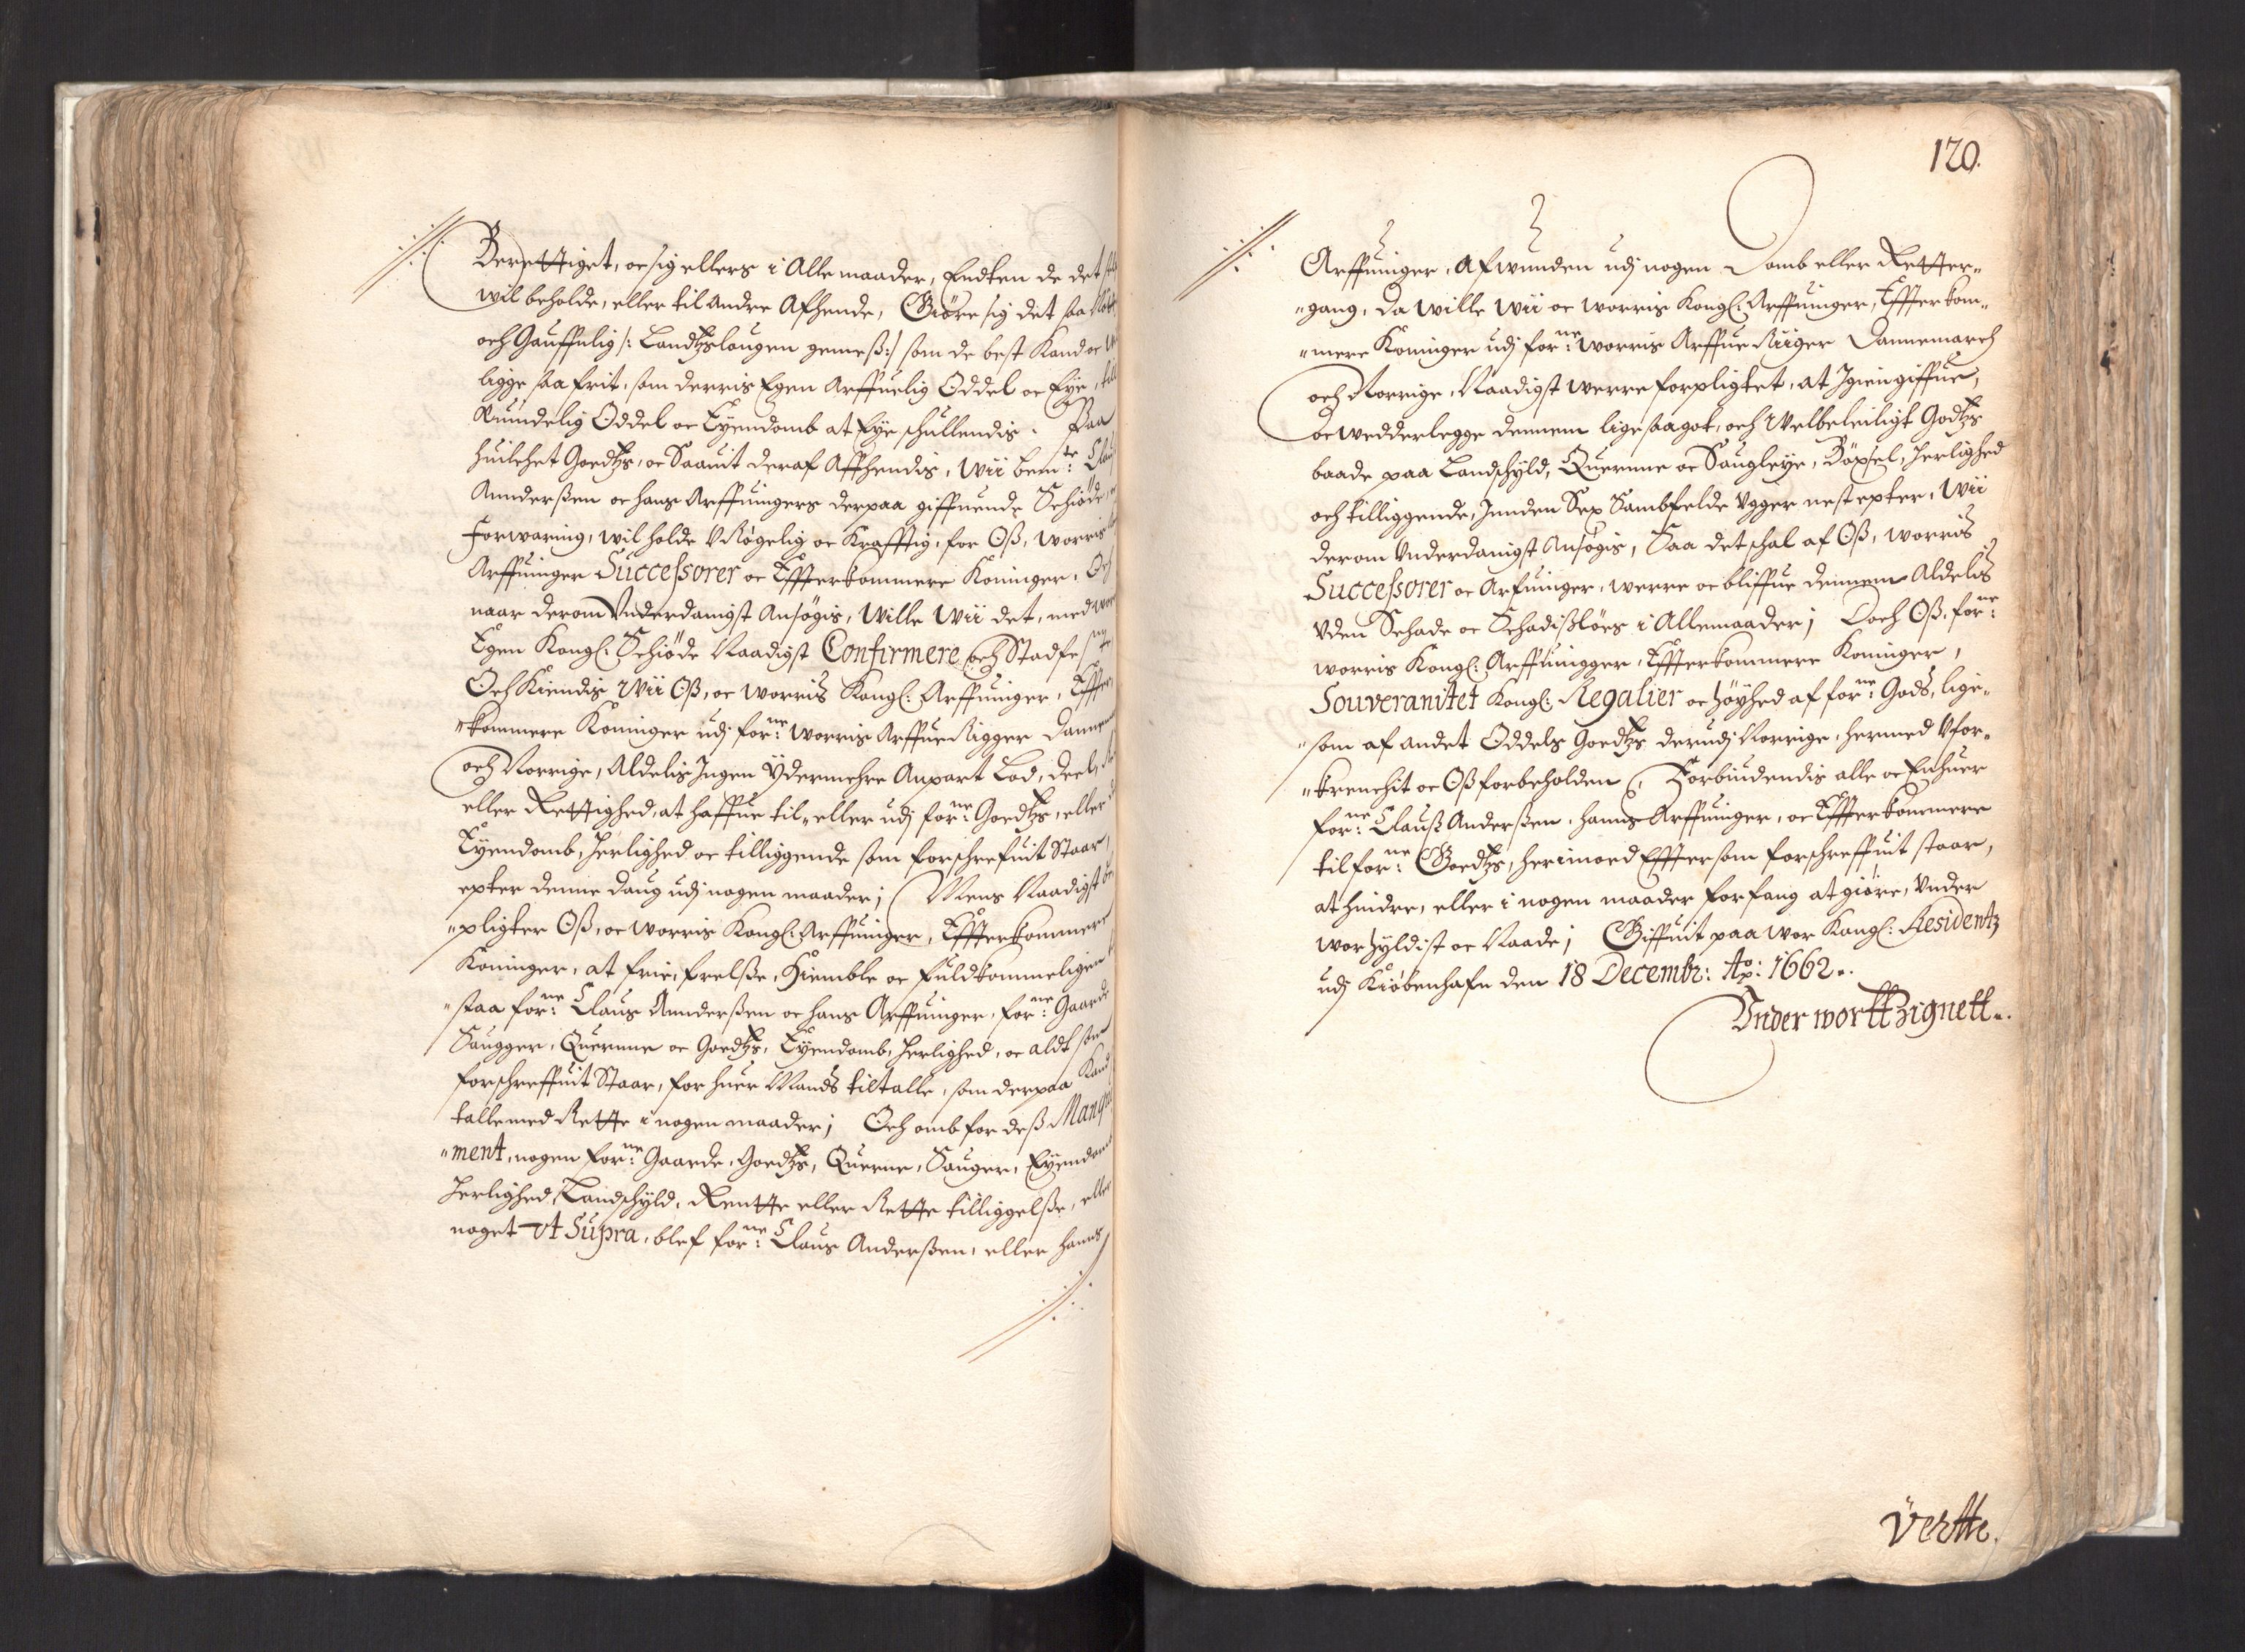 Berettiget, oc sig ellers i Alle maader, Endten de det
wil beholde, eller til andre Afhende, Giöre sig det saa
och Gauffnlig /: Landtzlougen gemeß :/ som de best Kand oc
ligge saa frit, som derris Egen Arffuelig Oddel oc Eye,
Uuindelig Oddel oc Eyendomb at Eye schullendis. Paa
huilchet Goedtzs, oc Saauit deraf Affhendis, Wii bemte:
Annderßen oc hans Arffuingers derpaa giffuende Schiöde
Forwaring, wil holde Urögelig oc Krafftig, for Oß, worris
Arffuinger Successorer oc Effterkommere Koninger, Och
naar derom Underdanigst Ansögis, Wille Wii det, med
Egen Kongl: Schiöde Naadigst Confirmere och Stadfeste
Och Kiendis Wii Oß, oc worris Kongl: Arffuinger, Effter
"kommere Koninger udj forne: Worris Arffue Rigger
och Norrige, Aldelis Ingen Ydermehre Anpart Lod, deel,
eller Rettighed, at haffue til, eller udj forne: Goedtzs, eller
Eyendomb, Herlighed oc tilliggende som forschrefuit Staar,
epter denne daug udj nogen maader; Mens Naadigst
"pligter Oß, oc worris Kongl: Arffuinger, Effterkommere
Koninger, at frie, frelße, Hiemble oc fuldkommeligen
"staa forne: Claus Annderßen oc hans Arffuinger, forne: Gaarde
Saugger, Quernne oc Goedtzs, Eyendomb, Herlighed, oc aldt som
forschreffuit Staar, for huer Mands tiltalle, som derpaa Kand
talle med Rette i nogen maader; Och omb for deß
"ment, nogen forne: Gaarde, Goedtzs, Querne, Sauger,
Herlighed, Landschyld, Rentte eller Rette tilliggelße, eller
noget Vt Supra, blef forne: Claus Anderßen, eller hanns
120.
Arffuinger, Afwunden udj nogen Domb eller Retter"
"gang, da wille Wii oc worris Kongl: Arffuinger, Effterkom"
"mere Koninger udj forne: worris Arffue Riiger Dannemarch
och Norrige, Naadigst werre forpligtet, at Igiengiffue,
oc wedderlegge dennem lige saa got, och Welbeleiligt Godtzs
baade paa Landschyld, Quernne oc Saugleye, Böxsel, Herlighed
och tilliggende, Innden Sex Sambfelde Ugger nest epter, Wii
derom Underdanigst Ansögis, Saa det schal af Oß, worris
Successorer oc Arfuinger, werre oc bliffue dennem Aldelis
Uden Schade oc Schadißlöes i Allemaader; Doch Oß, forne:
worris Kongl: Arffuingger, Effterkommere Koninger,
Souveranitet Kongl: Regalier oc höyhed af forne: Gods, lige"
"som af andet Oddels Goedtzs derudj Norrige, hermed Ufor"
"krenchit oc Oß forbeholden, Forbiudendis alle oc Enhuer
forne: Clauß Anderßen, hanns Arffuinger, oc Effterkommere
til forne: Goedtzs, her imoed Efftersom forschreffuit staar,
at hindre, eller i nogen maader forfang at giöre, Under
wor hyldist oc Naade; Giffuit paa Wor Kongl: Residentz
udj Kiöbenhafn den 18 Decembr: Ao: 1662.
Under wortt Zignett.
Vertte.